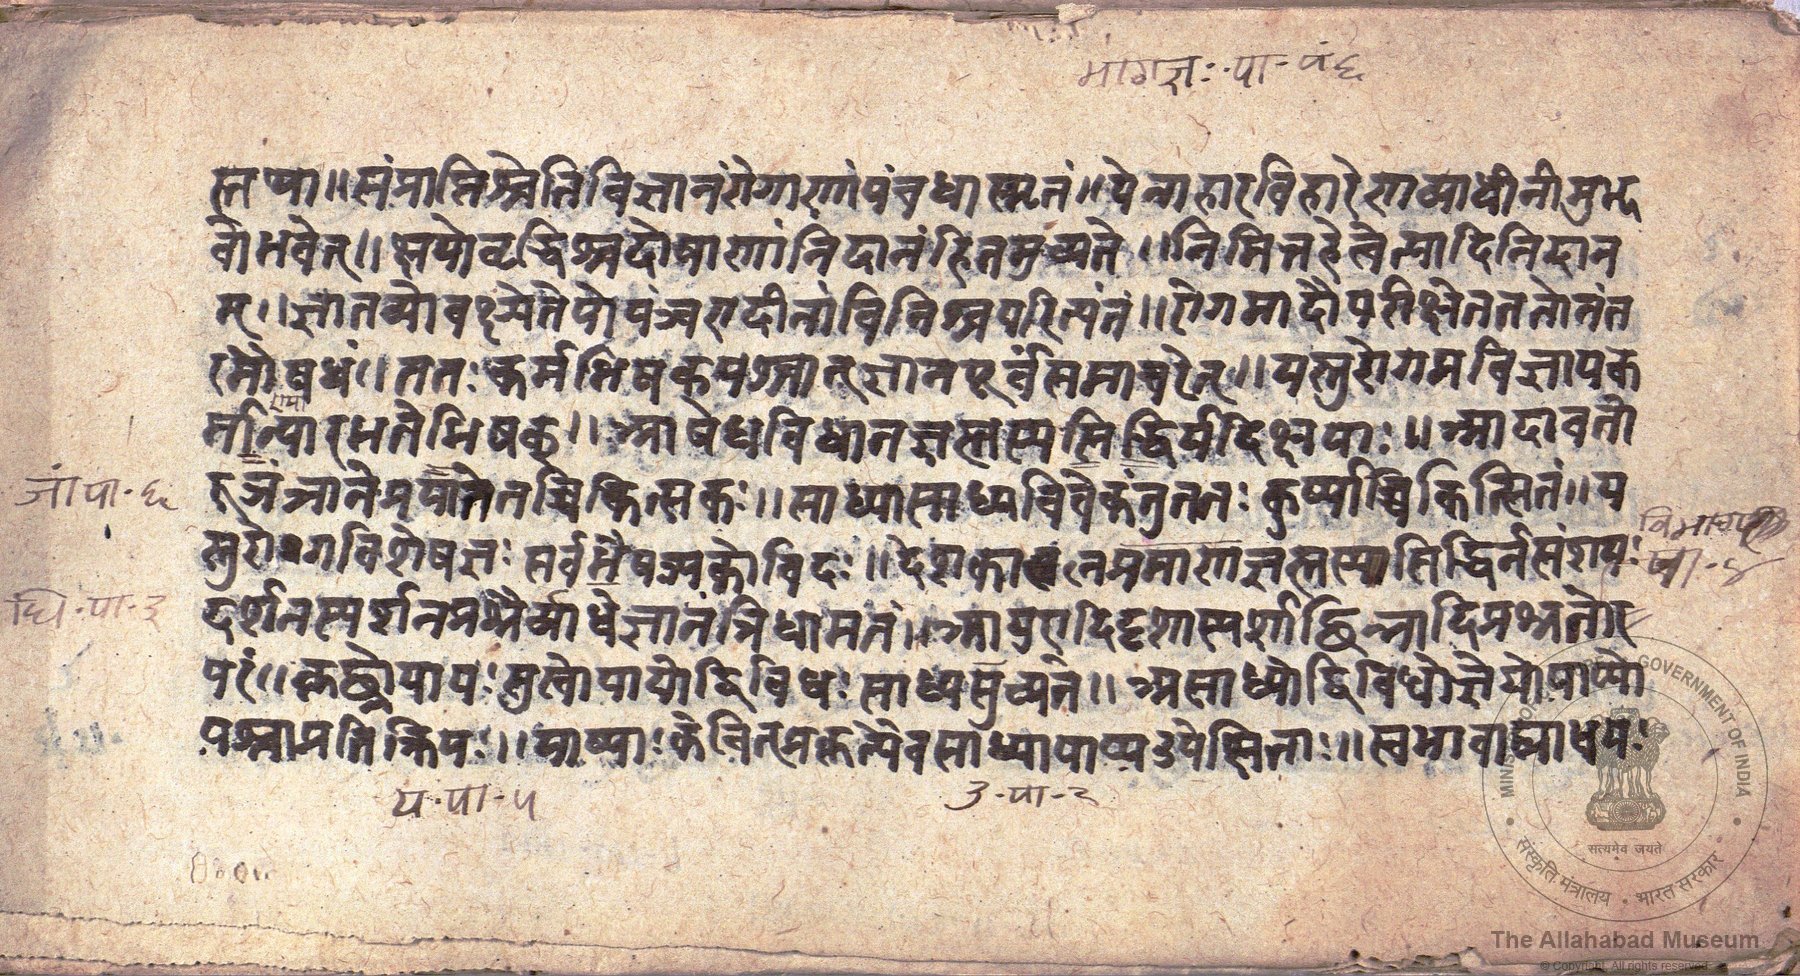 मागज्ञः-पा-पं६
स्तथा॥संप्राप्तिश्चेतिविज्ञानंरोगाणांपंचधास्मृतं॥येनाहारविहारेणव्याधीनीमुद्भ
वोभवेत्॥क्षयोवृद्धिश्चदोषाणांनिंदानंहितमुच्यते॥निमित्तहेत्वेत्यादिनिदान
म्॥ज्ञातव्योवक्ष्यतेयोपंज्वरादीनांविनिश्चयरित्यंनं॥रोगमादौपरीक्षेतततोनंत
रमौषधं॥ततःकर्मभिषक्पश्चात्ज्ञानपूर्वंसमाचरेत्॥यस्तुरोगमविज्ञायक
र्मान्यारभतेभिषक्॥औषधविधानज्ञस्तस्यसिद्धिर्यदिक्षया॥आदावतो
रुजंज्ञानेप्रयातेतच्चिकित्सकः॥साध्यासाध्यविवेकंतुततःकुर्य्याच्चिकित्सितं॥य
स्तुरोगविशेषज्ञःसर्वभैषज्यकोविदः॥देशकालप्रमाणज्ञस्तस्यसिद्धिर्नसंशयः
दर्शनस्पर्शनप्रश्नैर्व्याधेर्ज्ञानंत्रिधामतं॥आयुरादिदृशास्पर्शाच्छितादिप्रश्नतोऽ
परं॥कृच्छ्रोपायःसुखोपायोद्विविधःसाध्यमुच्यते॥असाध्योद्विविधोज्ञेयोयाप्यो
यश्चाप्रतिक्रियः॥याप्याःकेचित्प्रकृत्येवसाध्यायाप्यउपेक्षिताः॥स्वभावाद्व्याधयः
जां पा-६
घि-पा-३
पा-४
य-पा-५
उ-पा-२
MINISTRY OF CULTURE, GOVERNMENT OF INDIA
सत्यमेव जयते
संस्कृति मंत्रालय • भारत सरकार
The Allahabad Museum
© Copyright. All rights reserved